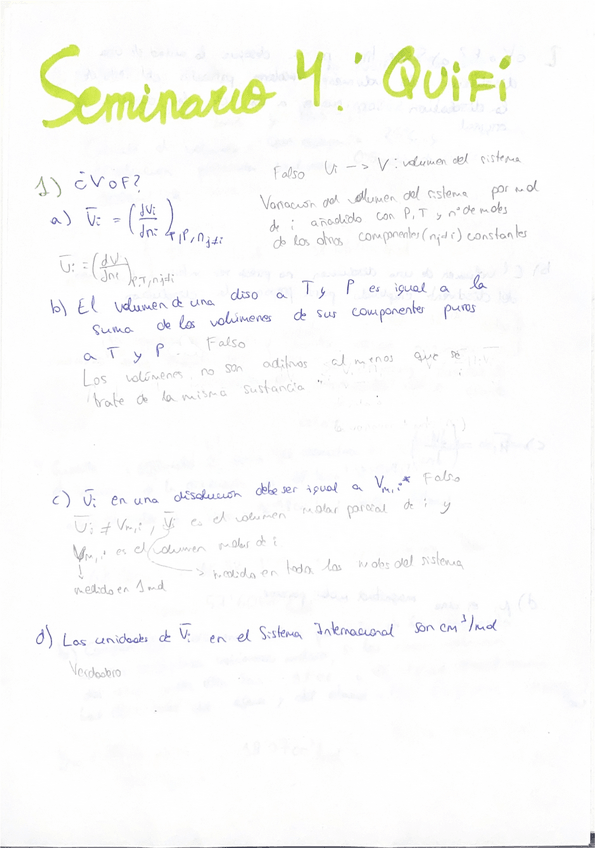 Seminario 4: QUIFI
1) ¿V o F?
Falso Vi --> V: volumen del sistema
Variación del volumen del sistema por mol
de i añadido con P, T y nº de moles
de los otros componentes (nj≠i) constantes
a) V̄i = (dVi/dni)T,P,nj≠i
V̄i = (dV/dni)P,T,nj≠i
b) El volumen de una diso a T y P es igual a la
suma de los volúmenes de sus componentes puros
a T y P. Falso
Los volúmenes no son aditivos al menos que se
"trate de la misma sustancia"
c) V̄i en una disolución debe ser igual a Vm,i* Falso
V̄i ≠ Vm,i, V̄i es el volumen molar parcial de i y
Vm,i es el volumen molar de i
medido en toda los moles del sistema
medido en 1 mol
d) Las unidades de V̄i en el Sistema Internacional son cm³/mol
Verdadero